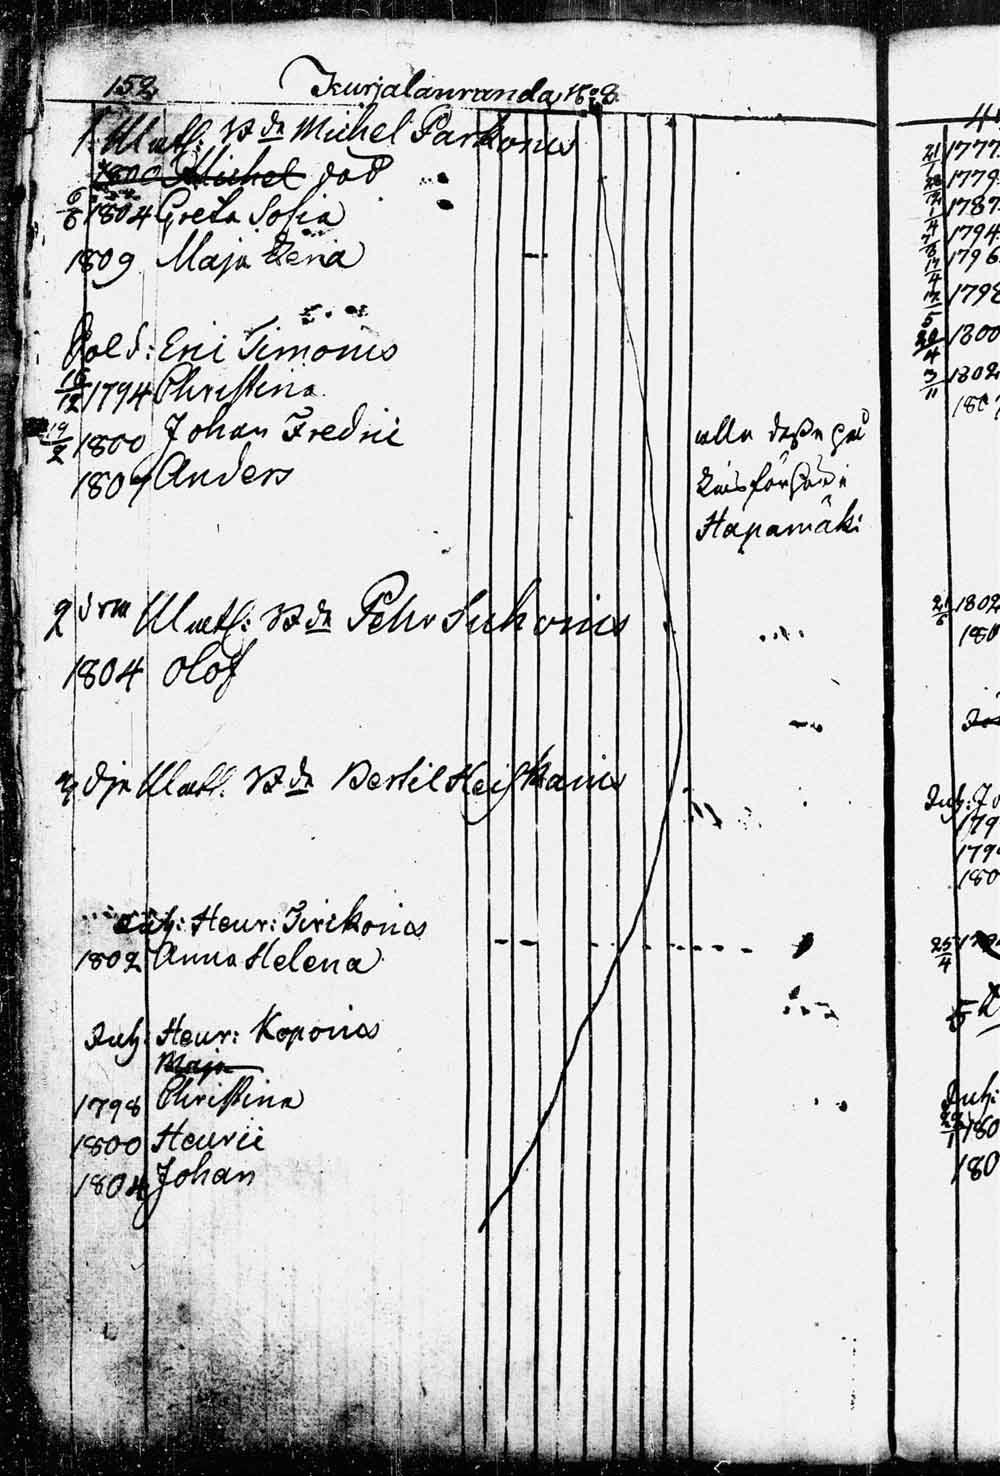 152. Kurjalanranda No 8.
1. Matl: Bdn Michel Parkoines
1800 Michel död
6/6 1804 Greta Sofia
1809 Maja Lena
Sold: Eric Timoines
16/12 1794 Christina
19/2 1800 Johan Fredric
1807 Anders
alla desse på
Hapamäki
2 Matl: Bdn Pehr Suhoines
1804 Olof
3 dje Matl. Bdn Bertil Heiskaines
Inh: Henr: Tirikoines
1802 Anna Helena
Inh: Henr: Kopoines
Maja
1798 Christina
1800 Henric
1804 Johan
21/1 1777.
1779
1/4 1787
1794
17/4 1796
1798
20/4 1800
3/11 1802
180
21/5 1802
180
Inh: Jo
179
179
180
25/4
5
Inh:
22/1 180
180